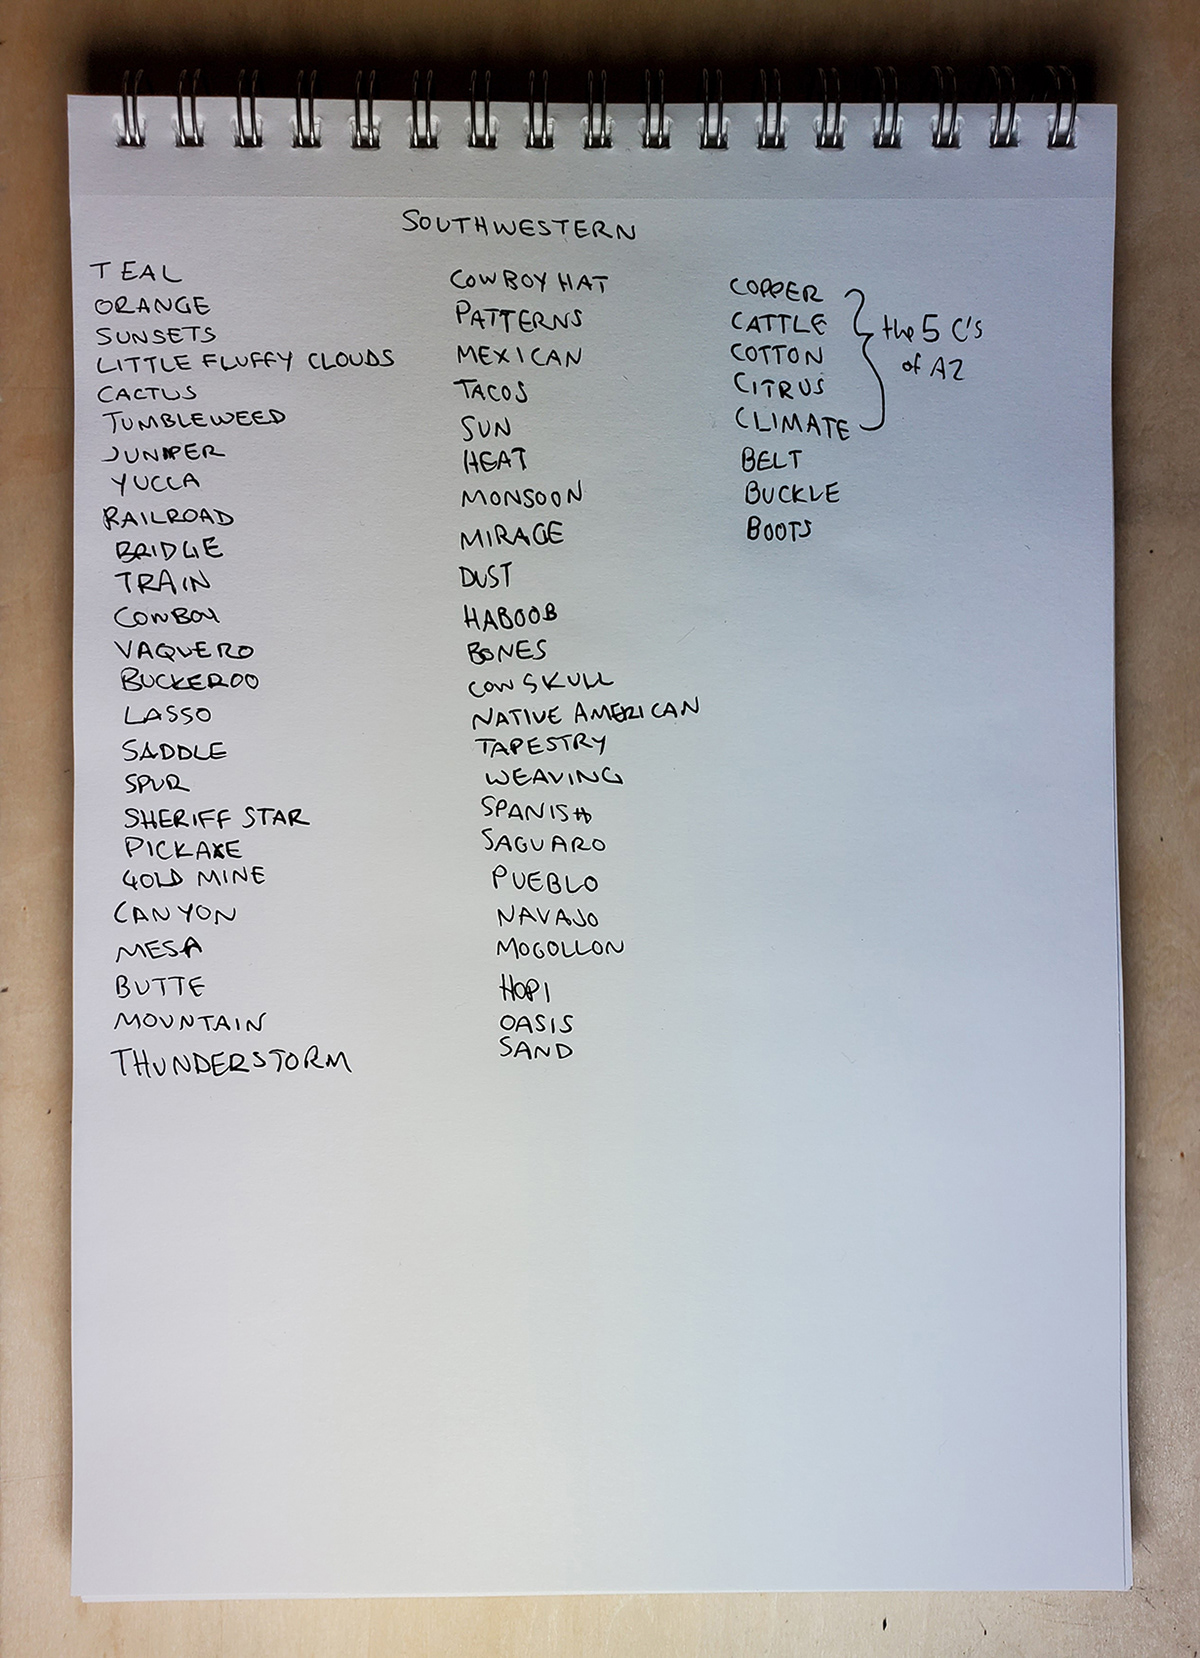 SOUTHWESTERN
TEAL
ORANGE
SUNSETS
LITTLE FLUFFY CLOUDS
CACTUS
TUMBLEWEED
JUNIPER
YUCCA
RAILROAD
BRIDGE
TRAIN
COWBOY
VAQUERO
BUCKEROO
LASSO
SADDLE
SPUR
SHERIFF STAR
PICKAXE
GOLD MINE
CANYON
MESA
BUTTE
MOUNTAIN
THUNDERSTORM
COWBOY HAT
PATTERNS
MEXICAN
TACOS
SUN
HEAT
MONSOON
MIRAGE
DUST
HABOOB
BONES
COW SKULL
NATIVE AMERICAN
TAPESTRY
WEAVING
SPANISH
SAGUARO
PUEBLO
NAVAJO
MOGOLLON
HOPI
OASIS
SAND
COPPER
CATTLE
COTTON
CITRUS
CLIMATE
the 5 C's
of AZ
BELT
BUCKLE
BOOTS